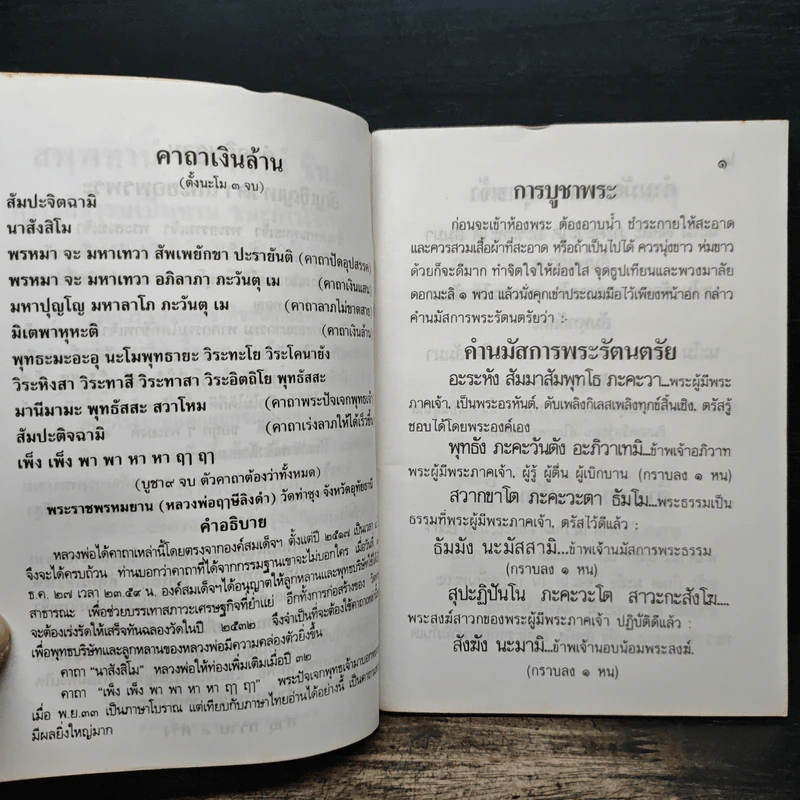 คาถาเงินล้าน
(ตั้งนะโม ๓ จบ)
สัมปะจิตฉามิ
นาสังสิโม
พรหมา จะ มหาเทวา สัพเพยักขา ปะรายันติ (คาถาปัดอุปสรรค)
พรหมา จะ มหาเทวา อภิลาภา ภะวันตุ เม (คาถาเงินแสน)
มหาปุญโญ มหาลาโภ ภะวันตุ เม (คาถาลาภไม่ขาดสาย)
มิเตพาหุหะติ (คาถาเงินล้าน
พุทธะมะอะอุ นะโมพุทธายะ วิระทะโย วิระโคนายัง
วิระหิงสา วิระทาสี วิระทาสา วิระอิตถิโย พุทธัสสะ
มานีมามะ พุทธัสสะ สวาโหม (คาถาพระปัจเจกพุทธเจ้า
สัมปะติจฉามิ (คาถาเร่งลาภให้ได้เร็วขึ้น
เพ็ง เพ็ง พา พา หา หา ฤๅ ฤๅ
(บูชา๙ จบ ตัวคาถาต้องว่าทั้งหมด)
พระราชพรหมยาน (หลวงพ่อฤาษีลิงดำ) วัดท่าซุง จังหวัดอุทัยธานี
คำอธิบาย
หลวงพ่อได้คาถาเหล่านี้โดยตรงจากองค์สมเด็จฯ ตั้งแต่ปี ๒๕๑๗ เป็นเวลา
จึงจะได้ครบถ้วน ท่านบอกว่าคาถาที่ได้จากกรรมฐานเขาจะไม่บอกใคร เมื่อวันที่
ธ.ค. ๒๗ เวลา ๒๓.๕๙ น. องค์สมเด็จฯได้อนุญาตให้ลูกหลานและพุทธบริษัทใช้
สาธารณะ เพื่อช่วยบรรเทาสภาวะเศรษฐกิจที่ย่ำแย่ อีกทั้งการก่อสร้างของ
จะต้องเร่งรัดให้เสร็จทันฉลองวัดในปี ๒๕๓๒ จึงจำเป็นที่จะต้องใช้คาถา
เพื่อพุทธบริษัทและลูกหลานของหลวงพ่อมีความคล่องตัวยิ่งขึ้น
คาถา "นาสังสิโม" หลวงพ่อให้ท่องเพิ่มเติมเมื่อปี ๓๒
คาถา "เพ็ง เพ็ง พา พา หา หา ฤๅ ฤๅ" พระปัจเจกพุทธเจ้ามาบอก
เมื่อ พ.ย.๓๓ เป็นภาษาโบราณ แต่เทียบกับภาษาไทยอ่านได้อย่างนี้ เป็นคาถา
มีผลยิ่งใหญ่มาก
๑
การบูชาพระ
ก่อนจะเข้าห้องพระ ต้องอาบน้ำ ชำระกายให้สะอาด
และควรสวมเสื้อผ้าที่สะอาด หรือถ้าเป็นไปได้ ควรนุ่งขาว ห่มขาว
ด้วยก็จะดีมาก ทำจิตใจให้ผ่องใส จุดธูปเทียนและพวงมาลัย
ดอกมะลิ ๑ พวง แล้วนั่งคุกเข่าประณมมือไว้เพียงหน้าอก กล่าว
คำนมัสการพระรัตนตรัยว่า :
คำนมัสการพระรัตนตรัย
อะระหัง สัมมาสัมพุทโธ ภะคะวา...พระผู้มีพระ
ภาคเจ้า, เป็นพระอรหันต์, ดับเพลิงกิเลสเพลิงทุกข์สิ้นเชิง, ตรัสรู้
ชอบได้โดยพระองค์เอง
พุทธัง ภะคะวันตัง อะภิวาเทมิ...ข้าพเจ้าอภิวาท
พระผู้มีพระภาคเจ้า, ผู้รู้ ผู้ตื่น ผู้เบิกบาน (กราบลง ๑ หน)
สวากขาโต ภะคะวะตา ธัมโม...พระธรรมเป็น
ธรรมที่พระผู้มีพระภาคเจ้า, ตรัสไว้ดีแล้ว :
ธัมมัง นะมัสสามิ...ข้าพเจ้านมัสการพระธรรม
(กราบลง ๑ หน)
สุปะฏิปันโน ภะคะวะโต สาวะกะสังโฆ...
พระสงฆ์สาวกของพระผู้มีพระภาคเจ้า ปฏิบัติดีแล้ว :
สังฆัง นะมามิ...ข้าพเจ้านอบน้อมพระสงฆ์.
(กราบลง ๑ หน)